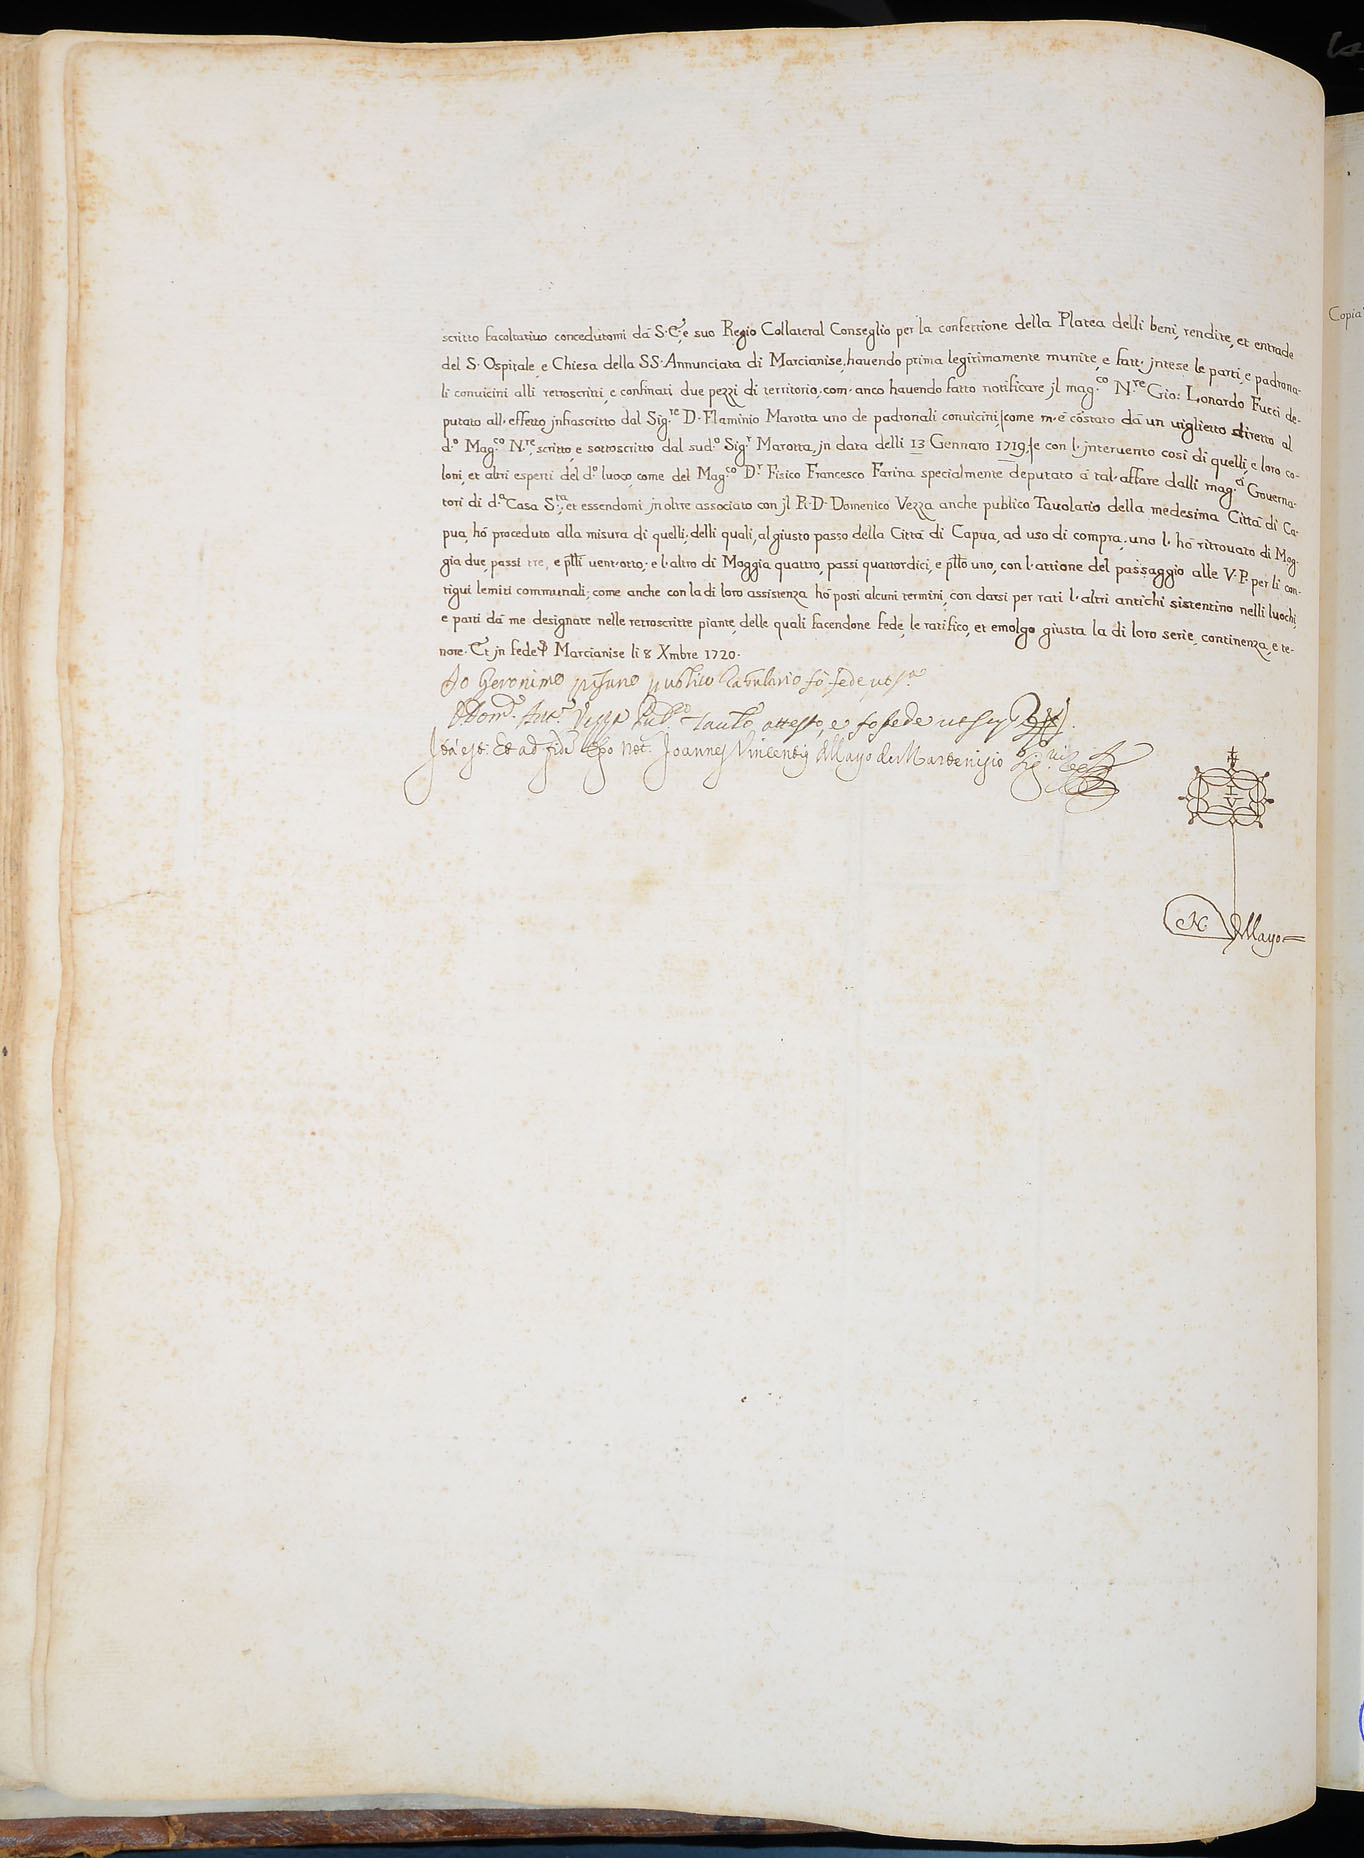 scritto facoltativo concedutomi dà S. E., e suo Regio Collateral Conseglio per la confettione della Platea delli beni, rendite, et entrade
del S. Ospitale, e Chiesa della SS. Annunciata di Marcianise, havendo prima legitimamente munite, e fatt' jntese le parti, e padrona-
li convicini alli retroscritti, e confinati due pezzi di territorio, com' anco havendo fatto notificare jl mag.co N.re Gio: Lonardo Fucci de-
putato all' effetto jnfrascritto dal Sig.re D. Flaminio Marotta uno de padronali convicini, |come m' è cõstato dà un viglietto diretto al
d.o Mag.co N.re, scritto, e sottoscritto dal sud.o Sig.r Marotta, jn data delli 13 Gennaro 1719,| e con l' jntervento così di quelli, e loro co-
loni, et altri esperti del d.o luoco, come del Mag.co D.r Fisico Francesco Farina specialmente deputato à tal' affare dalli mag.ci Governa-
tori di d.a Casa S.ta, et essendomi jnoltre associato con jl R. D. Domenico Vezza anche publico Tavolario della medesima Città di Ca-
pua, hò proceduto alla misura di quelli, delli quali, al giusto passo della Città di Capua, ad uso di compra, uno l' hò ritrovato di Mog-
gia due, passi tre, e pſſi vent' otto; e l' altro di Moggia quattro, passi quattordici, e pſſo uno, con l' attione del passaggio alle V. P. per li con-
tigui lemiti communali; come anche con la di loro assistenza hò posti alcuni termini, con darsi per rati l' altri antichi sistentino nelli luochi,
e parti dà me designate nelle retroscritte piante, delle quali facendone fede, le ratifico, et emolgo giusta la di loro serie, continenza, e te-
nore. Et jn fede Marcianise li 8 Xmbre 1720.
Io Geronimo publico Tabulario fò fede ut s.a
D. Dom.o Ant.o Vezza Pub.co Tau.lo attesto, e fo fede ut sup.
Ità est: Et ad fidẽ Ego Not. Joannes Vincentius Mayo de Marcenisio
I
V
N. Mayo =
Copia